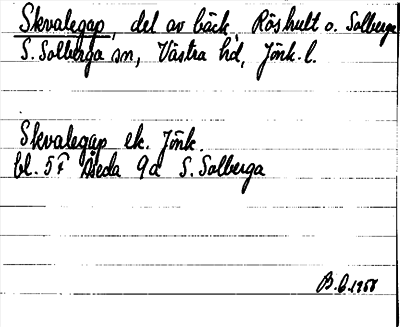 Skvalegap, del av bäck, Röshult o. Solberga
S. Solberga sn, Västra hd, Jönk. l.
Skvalegap ek. Jönk.
bl. 5F Åseda 9a S. Solberga
B.C. 1958